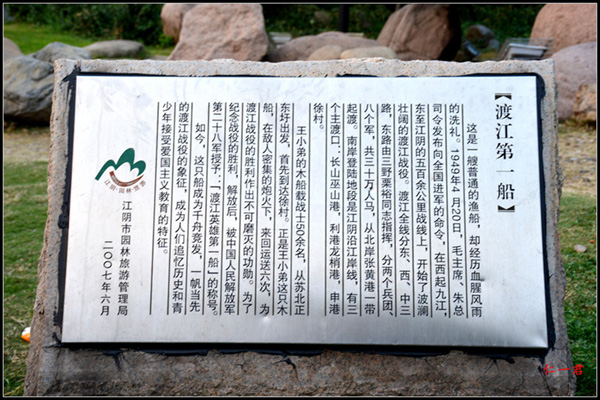 【渡江第一船】
这是一艘普通的渔船，却经历血腥风雨
的洗礼。1949年4月20日，毛主席、朱总
司令发布向全国进军的命令，在西起九江，
东至江阴的五百余公里战线上，开始了波澜
壮阔的渡江战役。渡江全线分东、西、中三
路，东路由三野粟裕同志指挥，分两个兵团，
八个军，共三十万人马，从北岸张黄港一带
起渡。南岸登陆地段是江阴沿江岸线，有三
个主渡口：长山巫山港，利港龙梢港，申港
徐村。
王小弟的木船载战士50余名，从苏北正
东圩出发，首先到达徐村。正是王小弟这只木
船，在敌人密集的炮火下，来回运送六次，为
渡江战役的胜利作出不可磨灭的功勋。为了
纪念战役的胜利，解放后，被中国人民解放军
第二十八军授予：“渡江英雄第一船”的称号。
如今，这只船成为千舟竞发，一帆当先
的渡江战役的象征，成为人们追忆历史和青
少年接受爱国主义教育的特征。
江阴市园林旅游
江阴市园林旅游管理局
二00七年六月